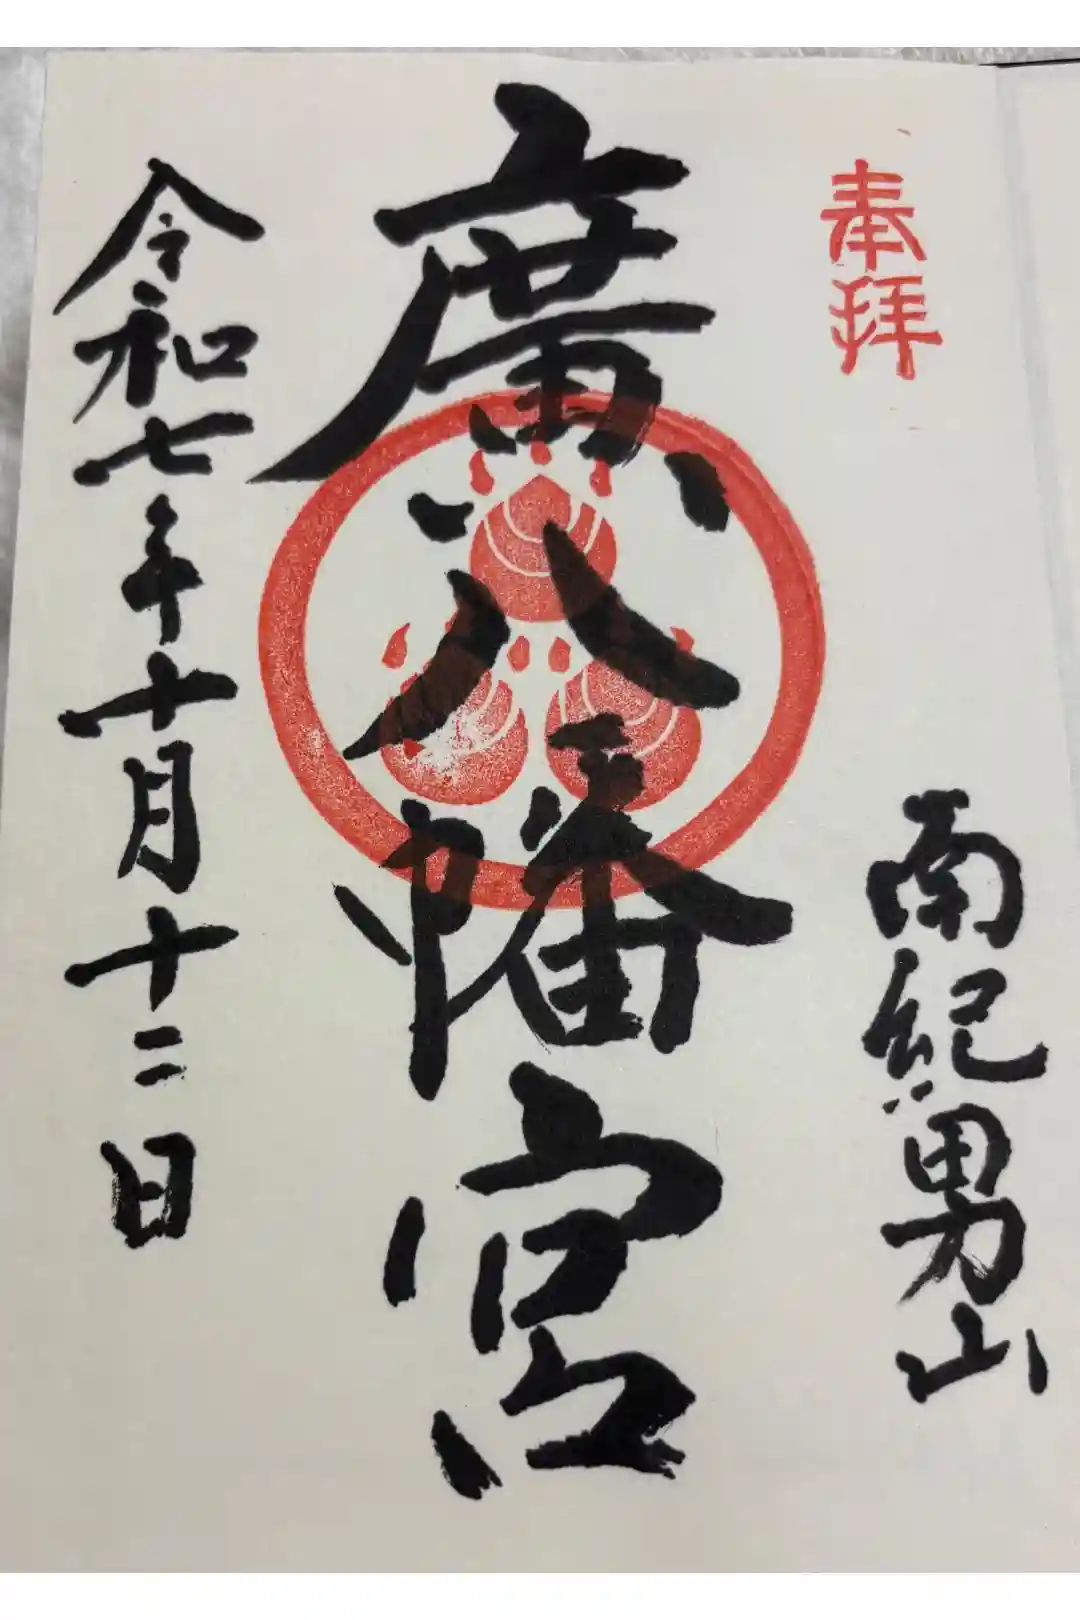 奉拝
南紀男山
廣八幡宮
令和七年十月十二日